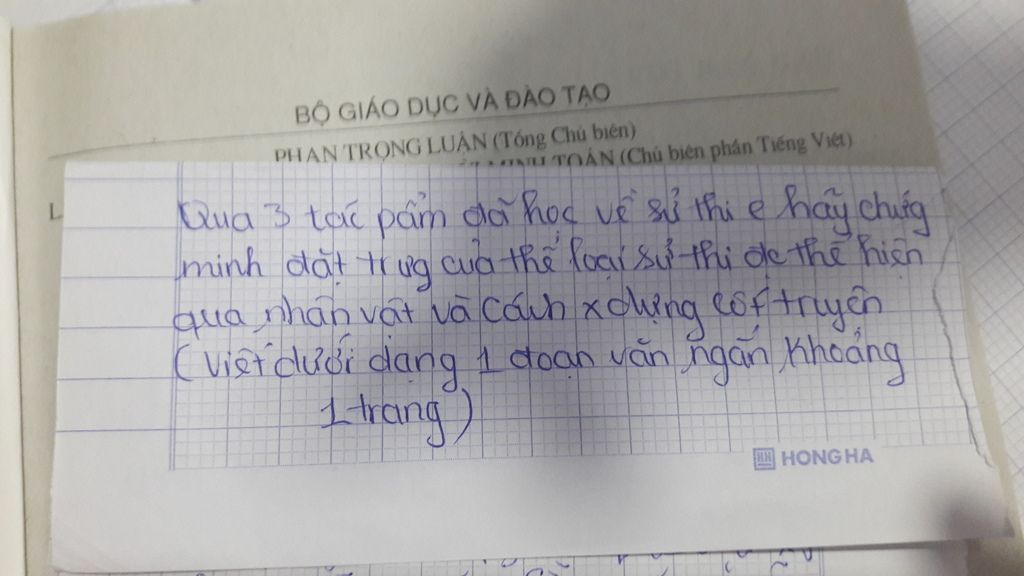 BỘ GIÁO DỤC VÀ ĐÀO TẠO
PHAN TRỌNG LUẬN (Tổng Chủ biên)
MINH TOÁN (Chủ biên phần Tiếng Việt)
L
Qua 3 tác pẩm đã học về sử thi e hãy chứg
minh đặt trưg của thể loại sử thi đc thể hiện
qua nhân vật và cách xdựng cốt truyện
(Viết dưới dạng 1 đoạn văn ngắn khoảng
1 trang)
HH HONG HA